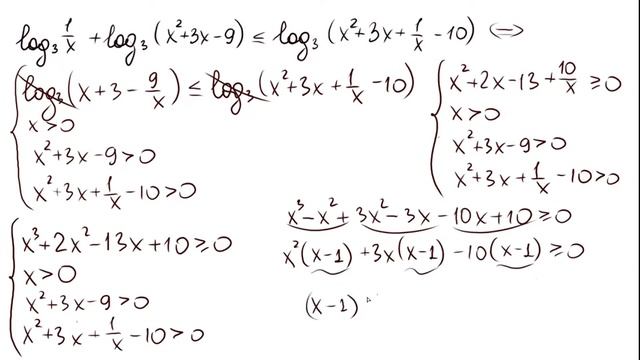 log₃ 1/x + log₃ (x²+3x-9) ≤ log₃ (x²+3x+1/x-10) ⇔
log₃ (x+3-9/x) ≤ log₃ (x²+3x+1/x-10)
x>0
x²+3x-9>0
x²+3x+1/x-10>0
x²+2x-13+10/x ≥0
x>0
x²+3x-9>0
x²+3x+1/x-10>0
x³+2x²-13x+10≥0
x>0
x²+3x-9>0
x²+3x+1/x-10>0
x³-x²+3x²-3x-10x+10≥0
x²(x-1)+3x(x-1)-10(x-1)≥0
(x-1)